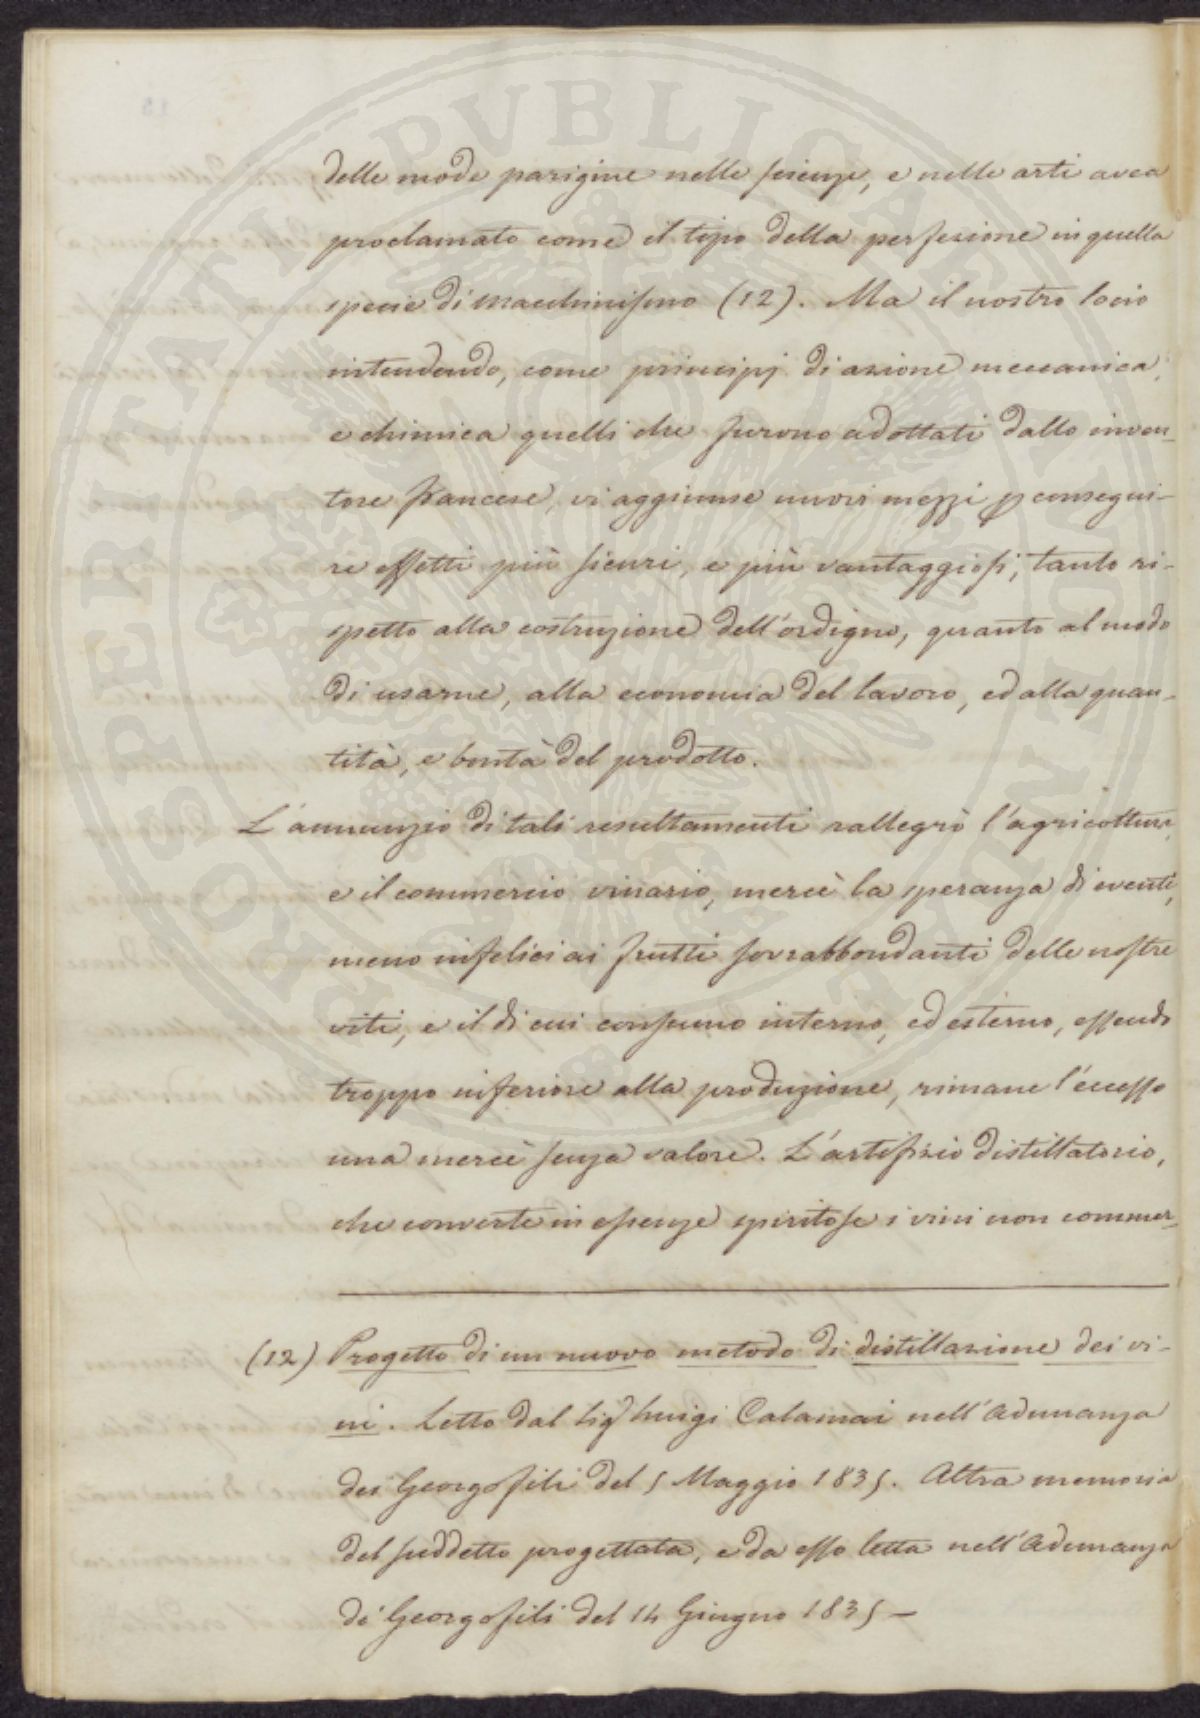 delle mode parigine nelle scienze, e nelle arti avea
proclamato come il tipo della perfezione in quella
specie di macchinismo (12). Ma il nostro Socio
intendendo, come principj di azione meccanica,
e chimica quelli che furono adottati dallo inven-
tore francese, vi aggiunse nuovi mezzi p consegui-
re effetti più sicuri, e più vantaggiosi, tanto ri-
spetto alla costruzione dell'ordigno, quanto al modo
di usarne, alla economia del lavoro, ed alla quan-
tità, e bontà del prodotto.
L'annunzio di tali resultamenti rallegrò l'agricoltura,
e il commercio vinario, mercè la speranza di eventi,
meno infelici ai frutti sovrabbondanti delle nostre
viti, e il di cui consumo interno, ed esterno, essendo
troppo inferiore alla produzione, rimane l'eccesso
una mercè senza valore. L'artifizio distillatorio,
che converte in essenze spiritose i vini non commer-
(12) Progetto di un nuovo metodo di distillazione dei vi-
ni. Letto dal Sig Luigi Calamai nell'Adunanza
dei Georgofili del 5 Maggio 1835. Altra memoria
del suddetto progettata, e da esso letta nell'Adunanza
de' Georgofili del 14 Giugno 1835 —
PROSPERITATI PUBLICAE AUGENDAE